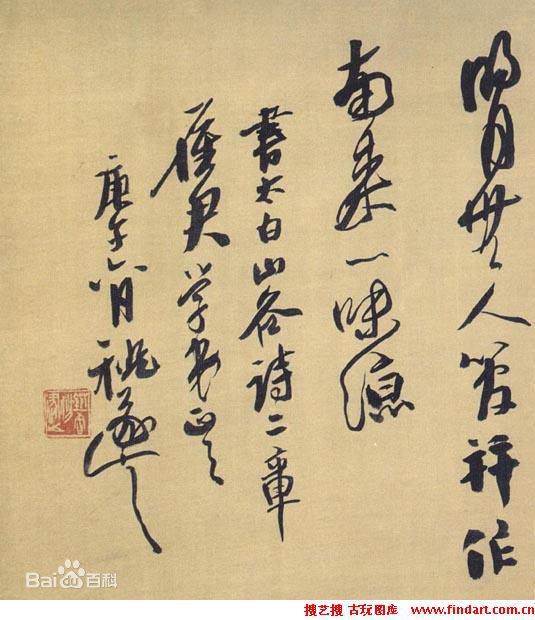 明月無人管并作
南来一味凉
書太白山谷詩二章
雁君学弟正之
庚午八月 姚
Bai百科
搜艺搜 古玩图库 www.findart.com.cn